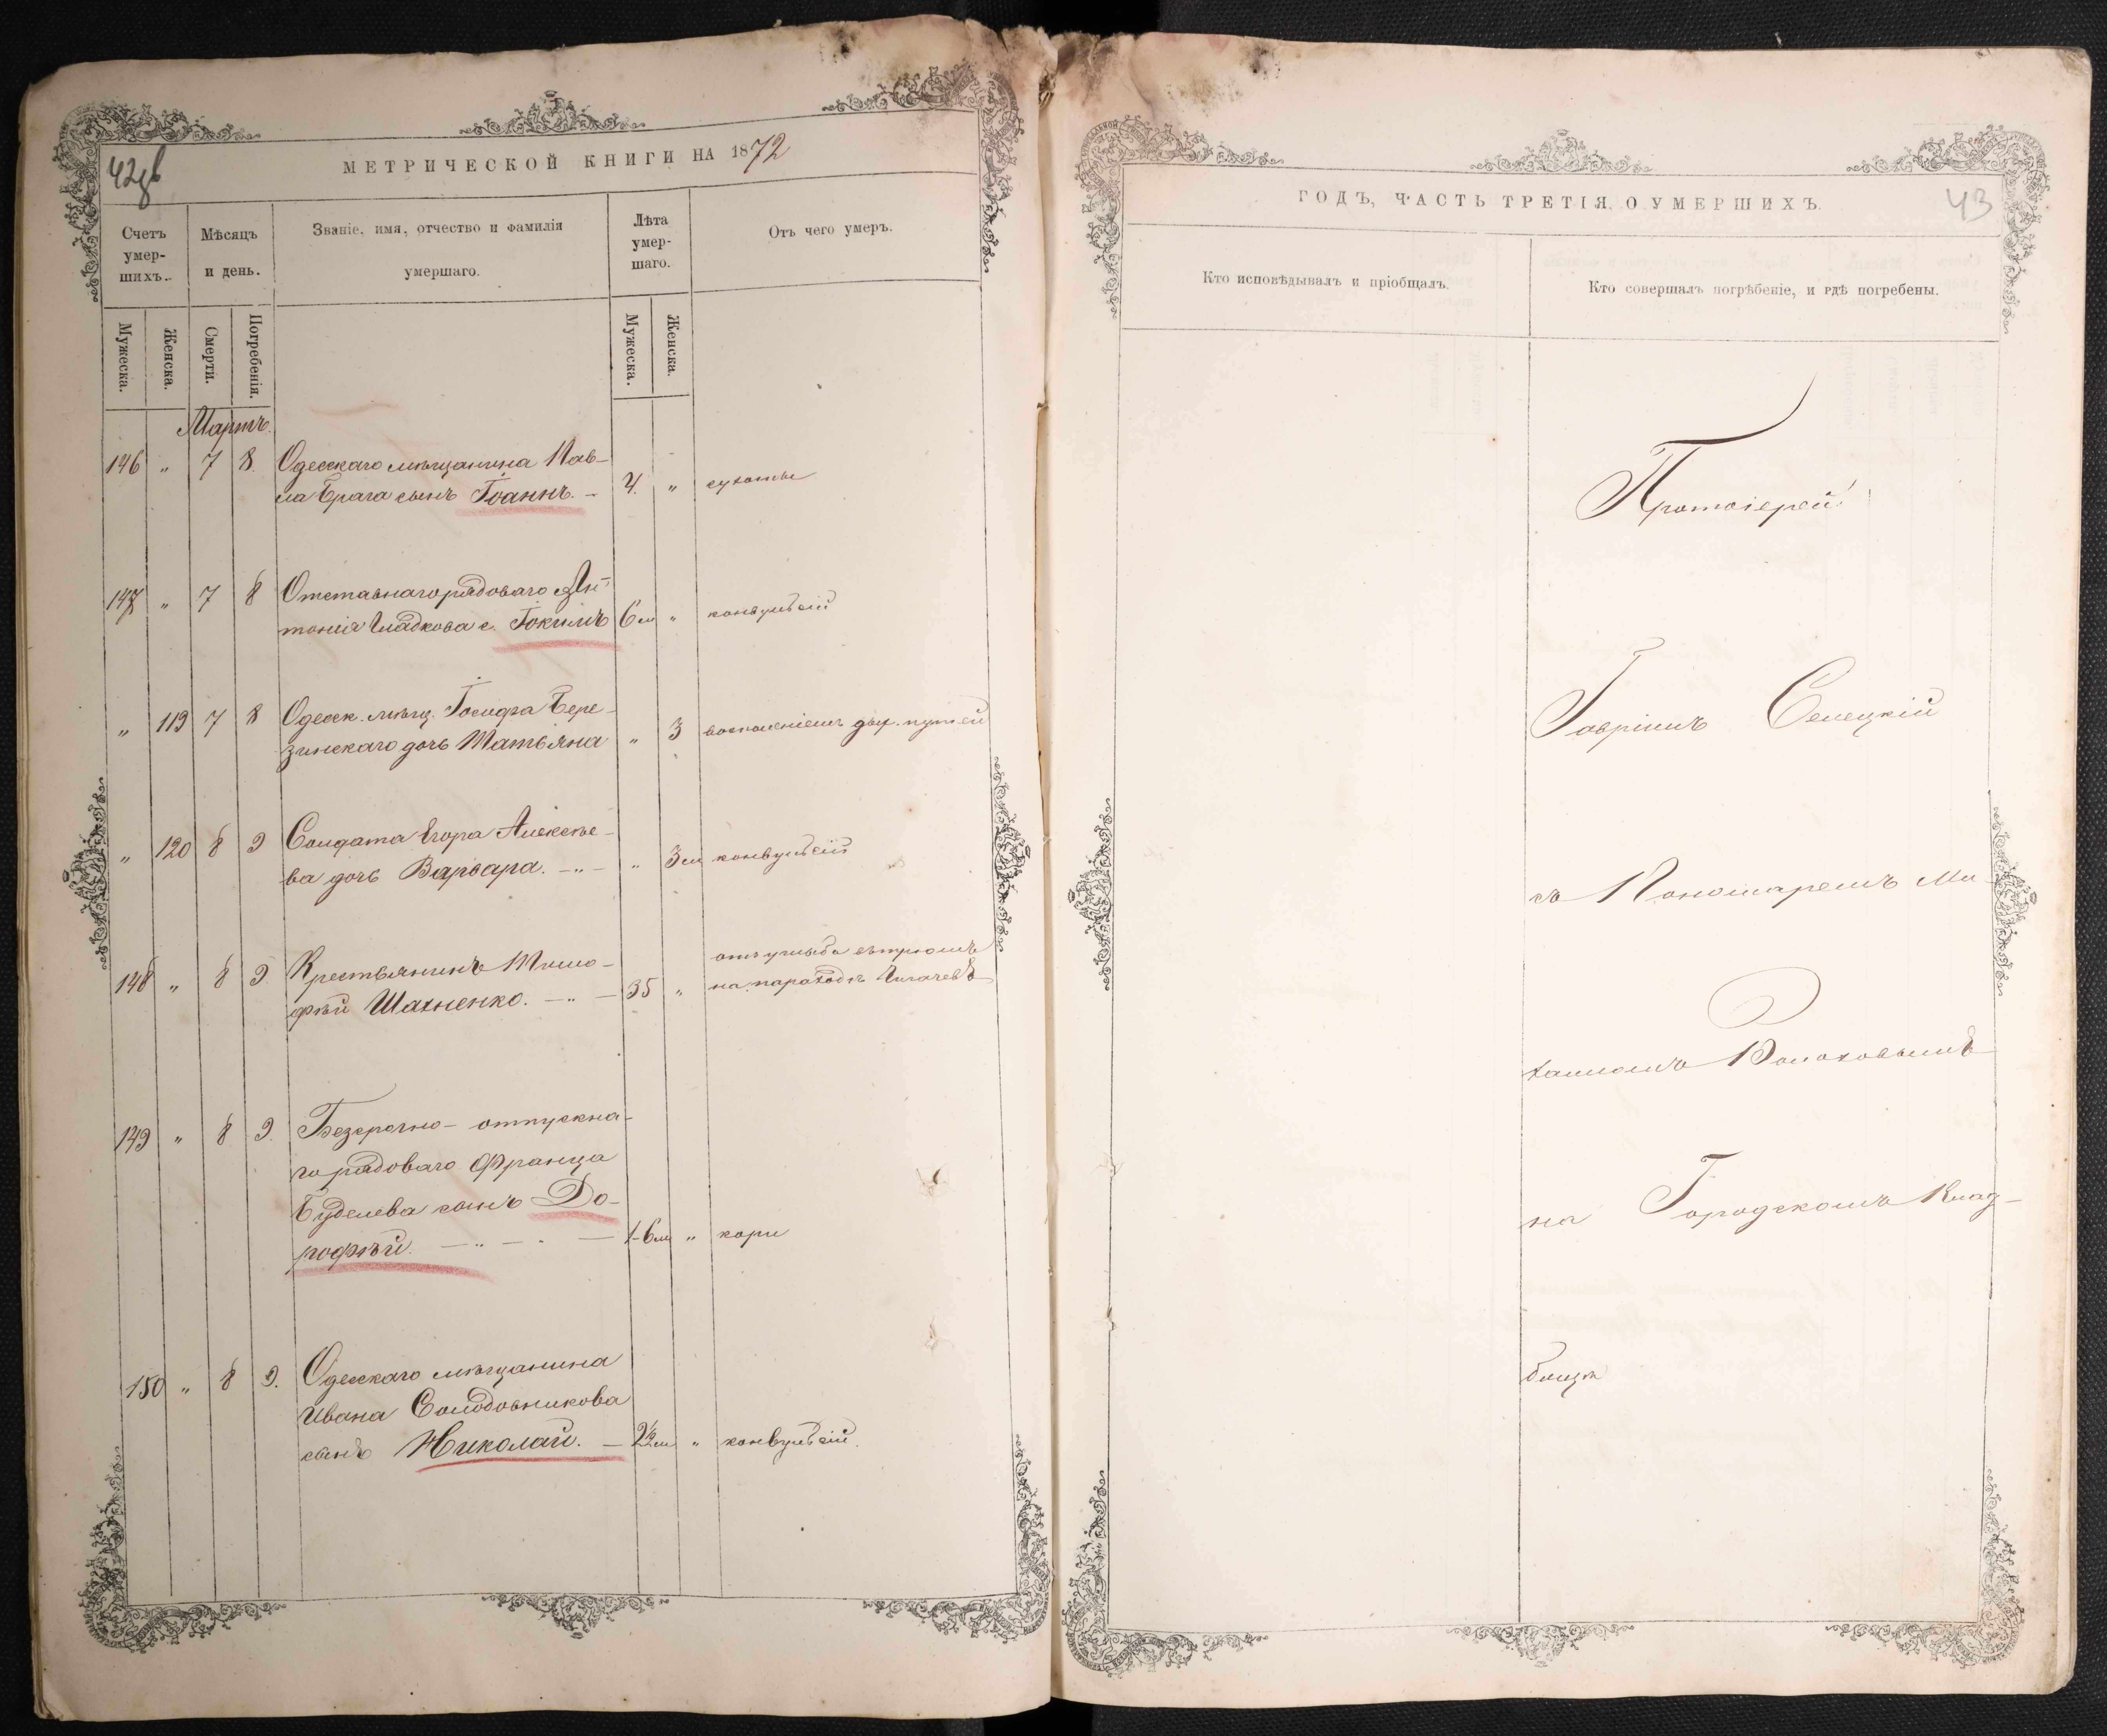 42об
МЕТРИЧЕСКОЙ КНИГИ НА 1872
Счетъ умер-шихъ.
Мѣсяцъ и день.
Званіе, имя, отчество и фамилія умершаго.
Лѣта умер-шаго.
Отъ чего умеръ.
Мужеска.
Женска.
Смерти.
Погребенія.
Мужеска.
Женска.
Мартъ.
146 " 7 8. Одесскаго мѣщанина Пав-
ла Брага сынъ Іоаннъ. – 4. " сухоты
147 " 7 8 Отставнаго рядоваго Ан-
тонія Гладкова с. Іокимъ 6 м " конвульсій
" 119 7 8 Одесск. мѣщ. Іосифа Бере-
зинскаго дочь Татьяна " 3 воспаленіемъ дых. путей
" 120 8 9 Солдата Егора Алексѣе-
ва дочь Варвара. – " – " 3 м конвульсій
148 " 8 9. Крестьянинъ Тимо-
фѣй Шахненко. – " – 35 " отъ ушыба въ трюмъ
на пароходѣ Чигачевъ
149 " 8 9. Безсрочно-отпускна-
го рядоваго Франца
Буделева сынъ До-
рофѣй. – " – " – 1-6 м " кори
150 " 8 9. Одесскаго мѣщанина
Ивана Солодовникова
сынъ Николай. – 2½ м " конвульсій.
ГОДЪ, ЧАСТЬ ТРЕТІЯ, О УМЕРШИХЪ.
43
Кто исповѣдывалъ и пріобщалъ.
Кто совершалъ погрѣбеніе, и гдѣ погребены.
Протоіерей
Гавріилъ Селецкій
съ Пономаремъ Ми-
хаиломъ Волоховымъ
на Городскомъ Клад-
бищѣ